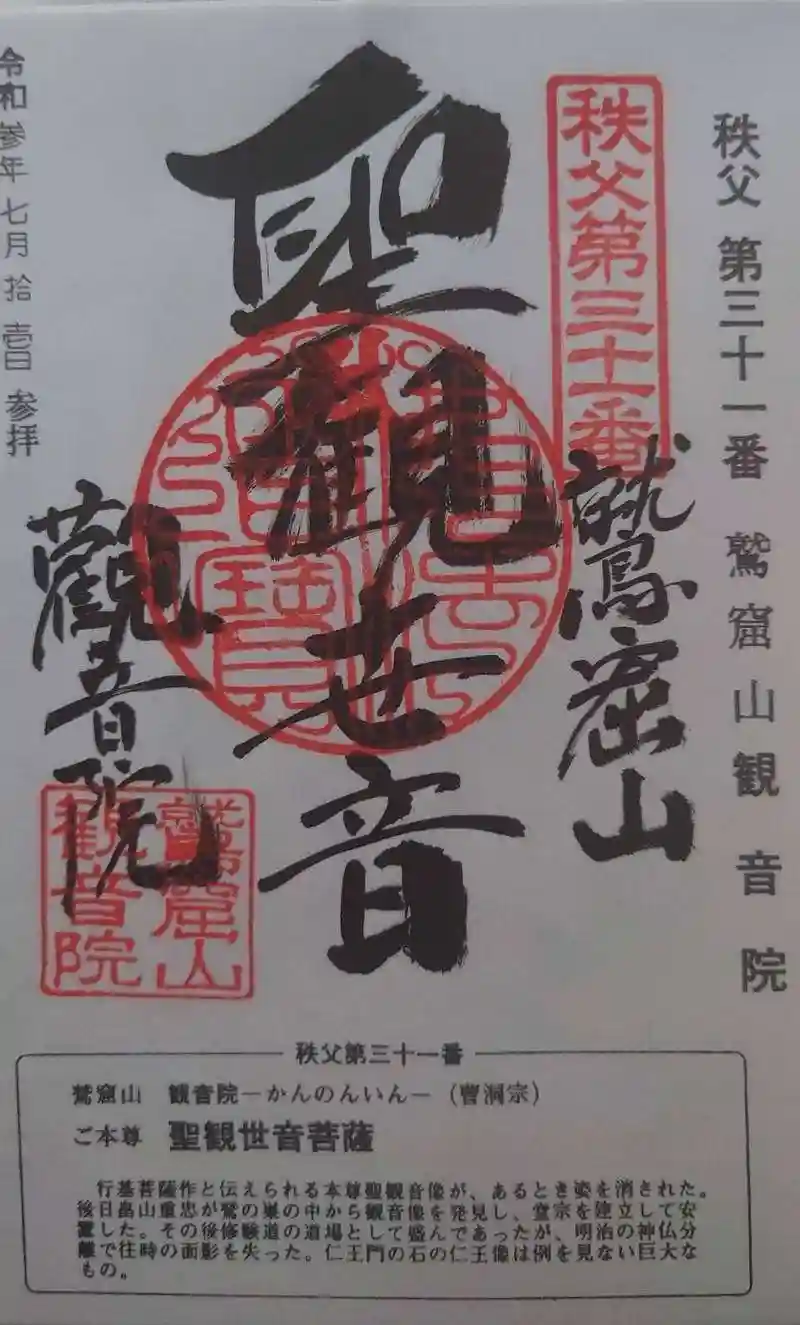 秩父 第三十一番 鷲窟山観音院
秩父第三十一番
鷲窟山
聖観世音
佛法僧寶
觀音院
鷲窟山
観音院
令和参年七月拾壱日 参拝
秩父第三十一番
鷲窟山 観音院－かんのんいん－（曹洞宗）
ご本尊 聖観世音菩薩
行基菩薩作と伝えられる本尊聖観音像が、あるとき姿を消された。
後日畠山重忠が鷲の巣の中から観音像を発見し、堂宗を建立して安
置した。その後修験道の道場として盛んであったが、明治の神仏分
離で往時の面影を失った。仁王門の石の仁王像は例を見ない巨大な
もの。